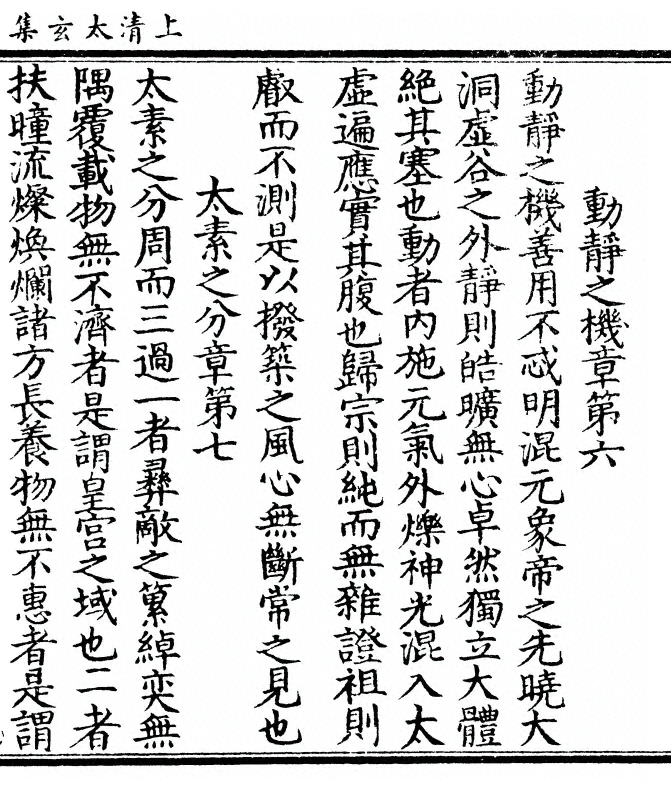 上清太玄集
動靜之機章第六
動靜之機善用不忒明混元象帝之先曉大
洞虛谷之外靜則皓曠無心卓然獨立大體
絕其塞也動者內施元氣外爍神光混入太
虛遍應實其腹也歸宗則純而無雜證祖則
叡而不測是以撥築之風心無斷常之見也
太素之分章第七
太素之分周而三過一者彝敵之綽奕無
隅覆載物無不濟者是謂皇宮之域也二者
扶曈流燦煥爛諸方長養物無不惠者是謂